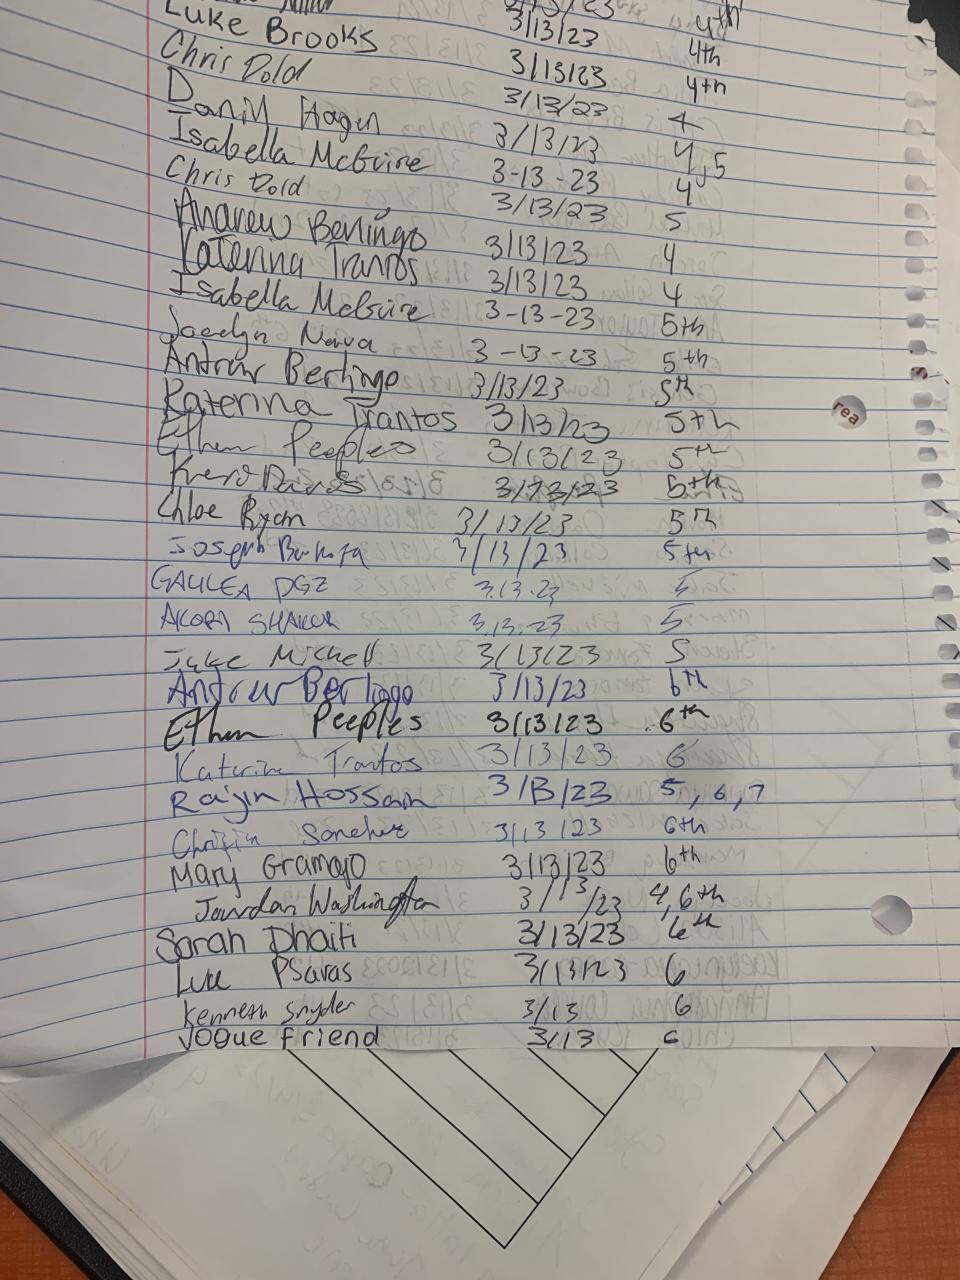 3/13/23 4th
Luke Brooks 3/13/23 4th
Chris Dold 3/13/23 4th
Danill Hagen 3/13/23 4
Isabella McGuire 3/13/23 4,5
Chris Dold 3-13-23 4
Andrew Berlingo 3/13/23 5
Katerina Trantos 3/13/23 4
Isabella McGuire 3/13/23 4
Jocelyn Nava 3-13-23 5th
Andrew Berlingo 3-13-23 5th
Katerina Trantos 3/13/23 5th
Ethan Peeples 3/13/23 5th
3/13/23 5th
Chloe Ryan 3/13/23 5th
Joseph 3/13/23 5th
GALILEA DGZ 3.13.23 5
AKORA SHAKUR 3.13.23 5
Jake Michell 3/13/23 5
Andrew Berlingo 3/13/23 6th
Ethan Peeples 3/13/23 6th
Katerina Trantos 3/13/23 6
Raiyin Hossain 3/13/23 5, 6, 7
Sanchez 3/13/23 6th
Mary Gramajo 3/13/23 6th
Jourdan Washington 3/13/23 4,6th
Sarah Dhaiti 3/13/23 6th
Luke Psaras 3/13/23 6
Kenneth Snyder 3/13 6
Vogue friend 3/13 6
rea